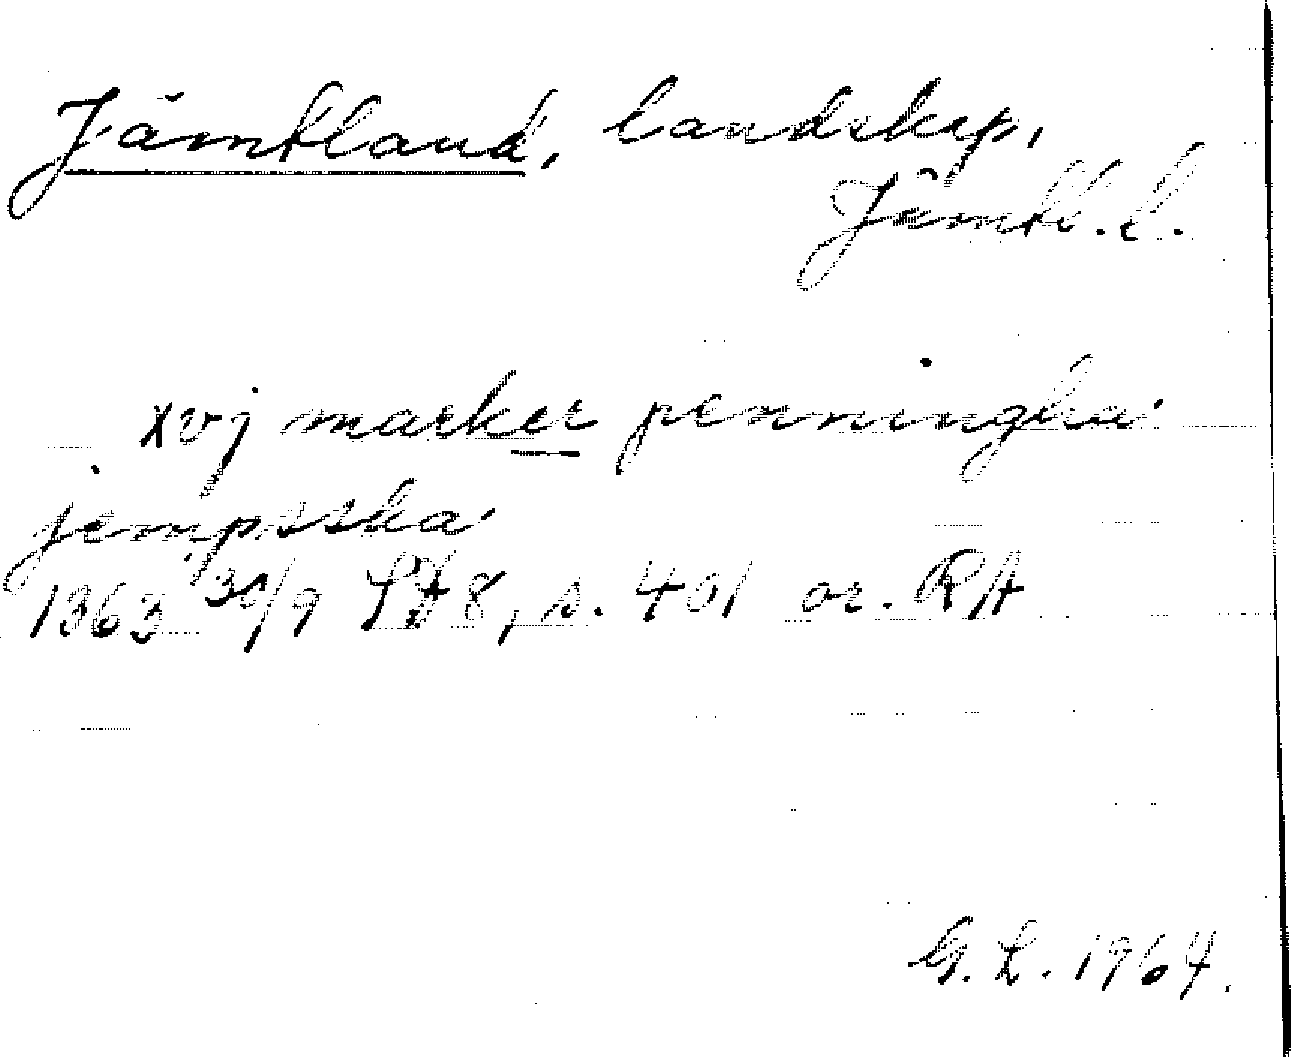 Jämtland, landskap,
Jämtl. l.
xvj marker penningha
jempsska
1363 30/9 SD 8, s. 401 or. RA
G. L. 1964.